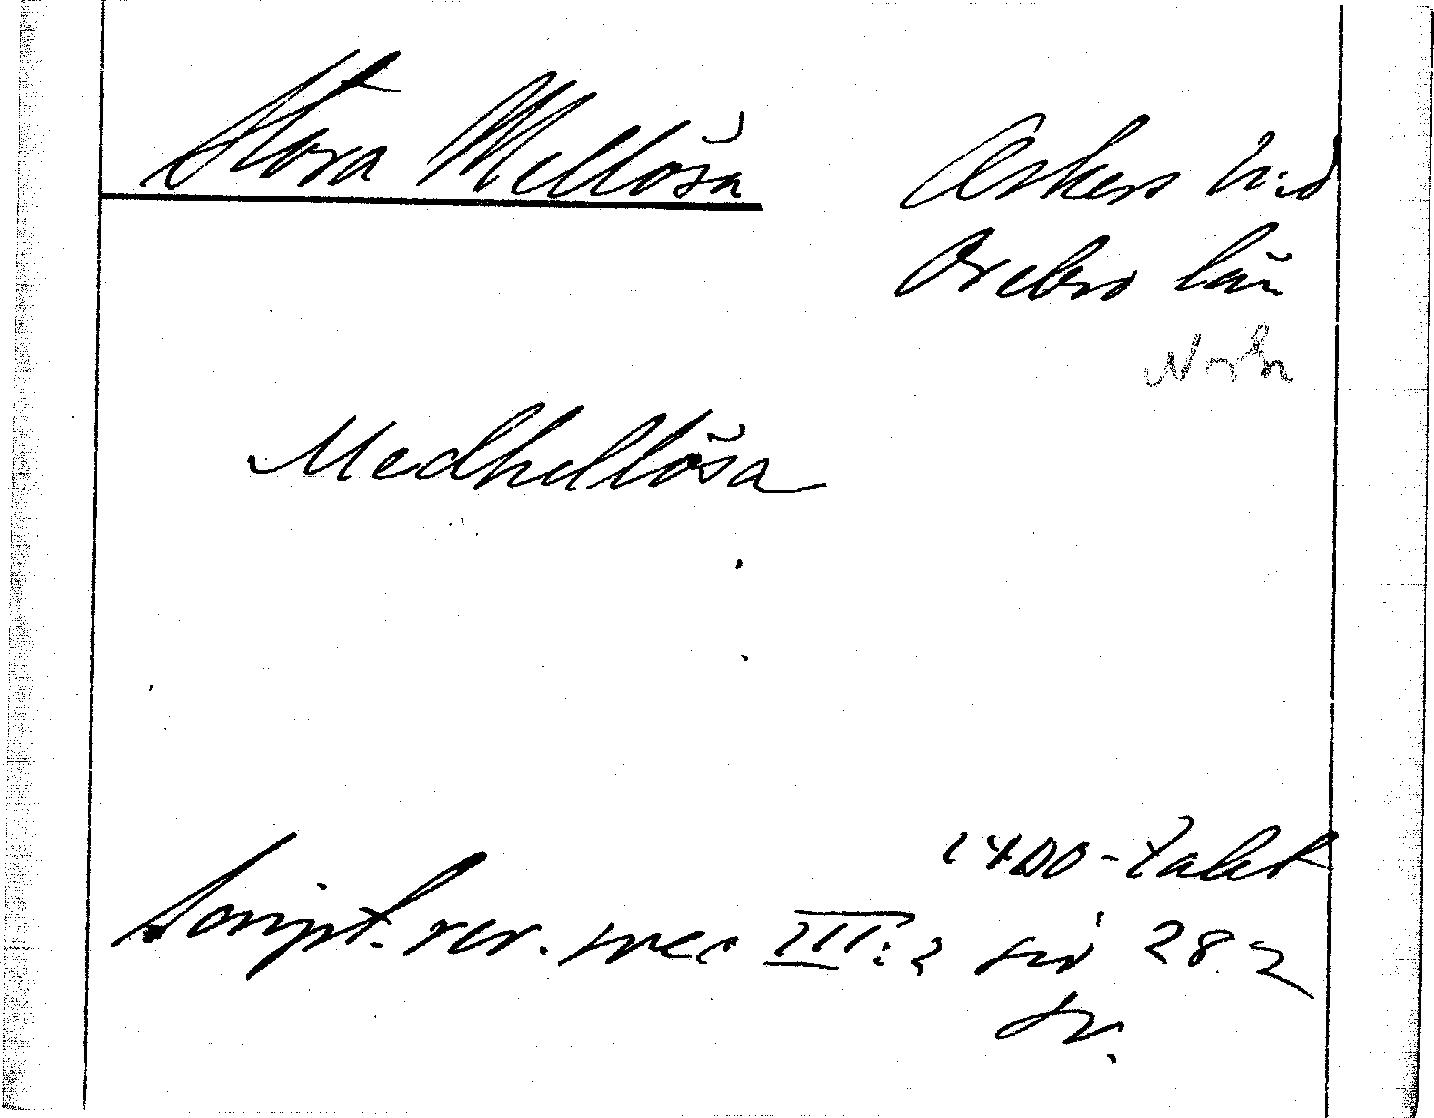 Stora Mellösa
Askers h:d
Örebro län
Medhellösa
1400-talet
Script. rer. svec III:2 sid 282